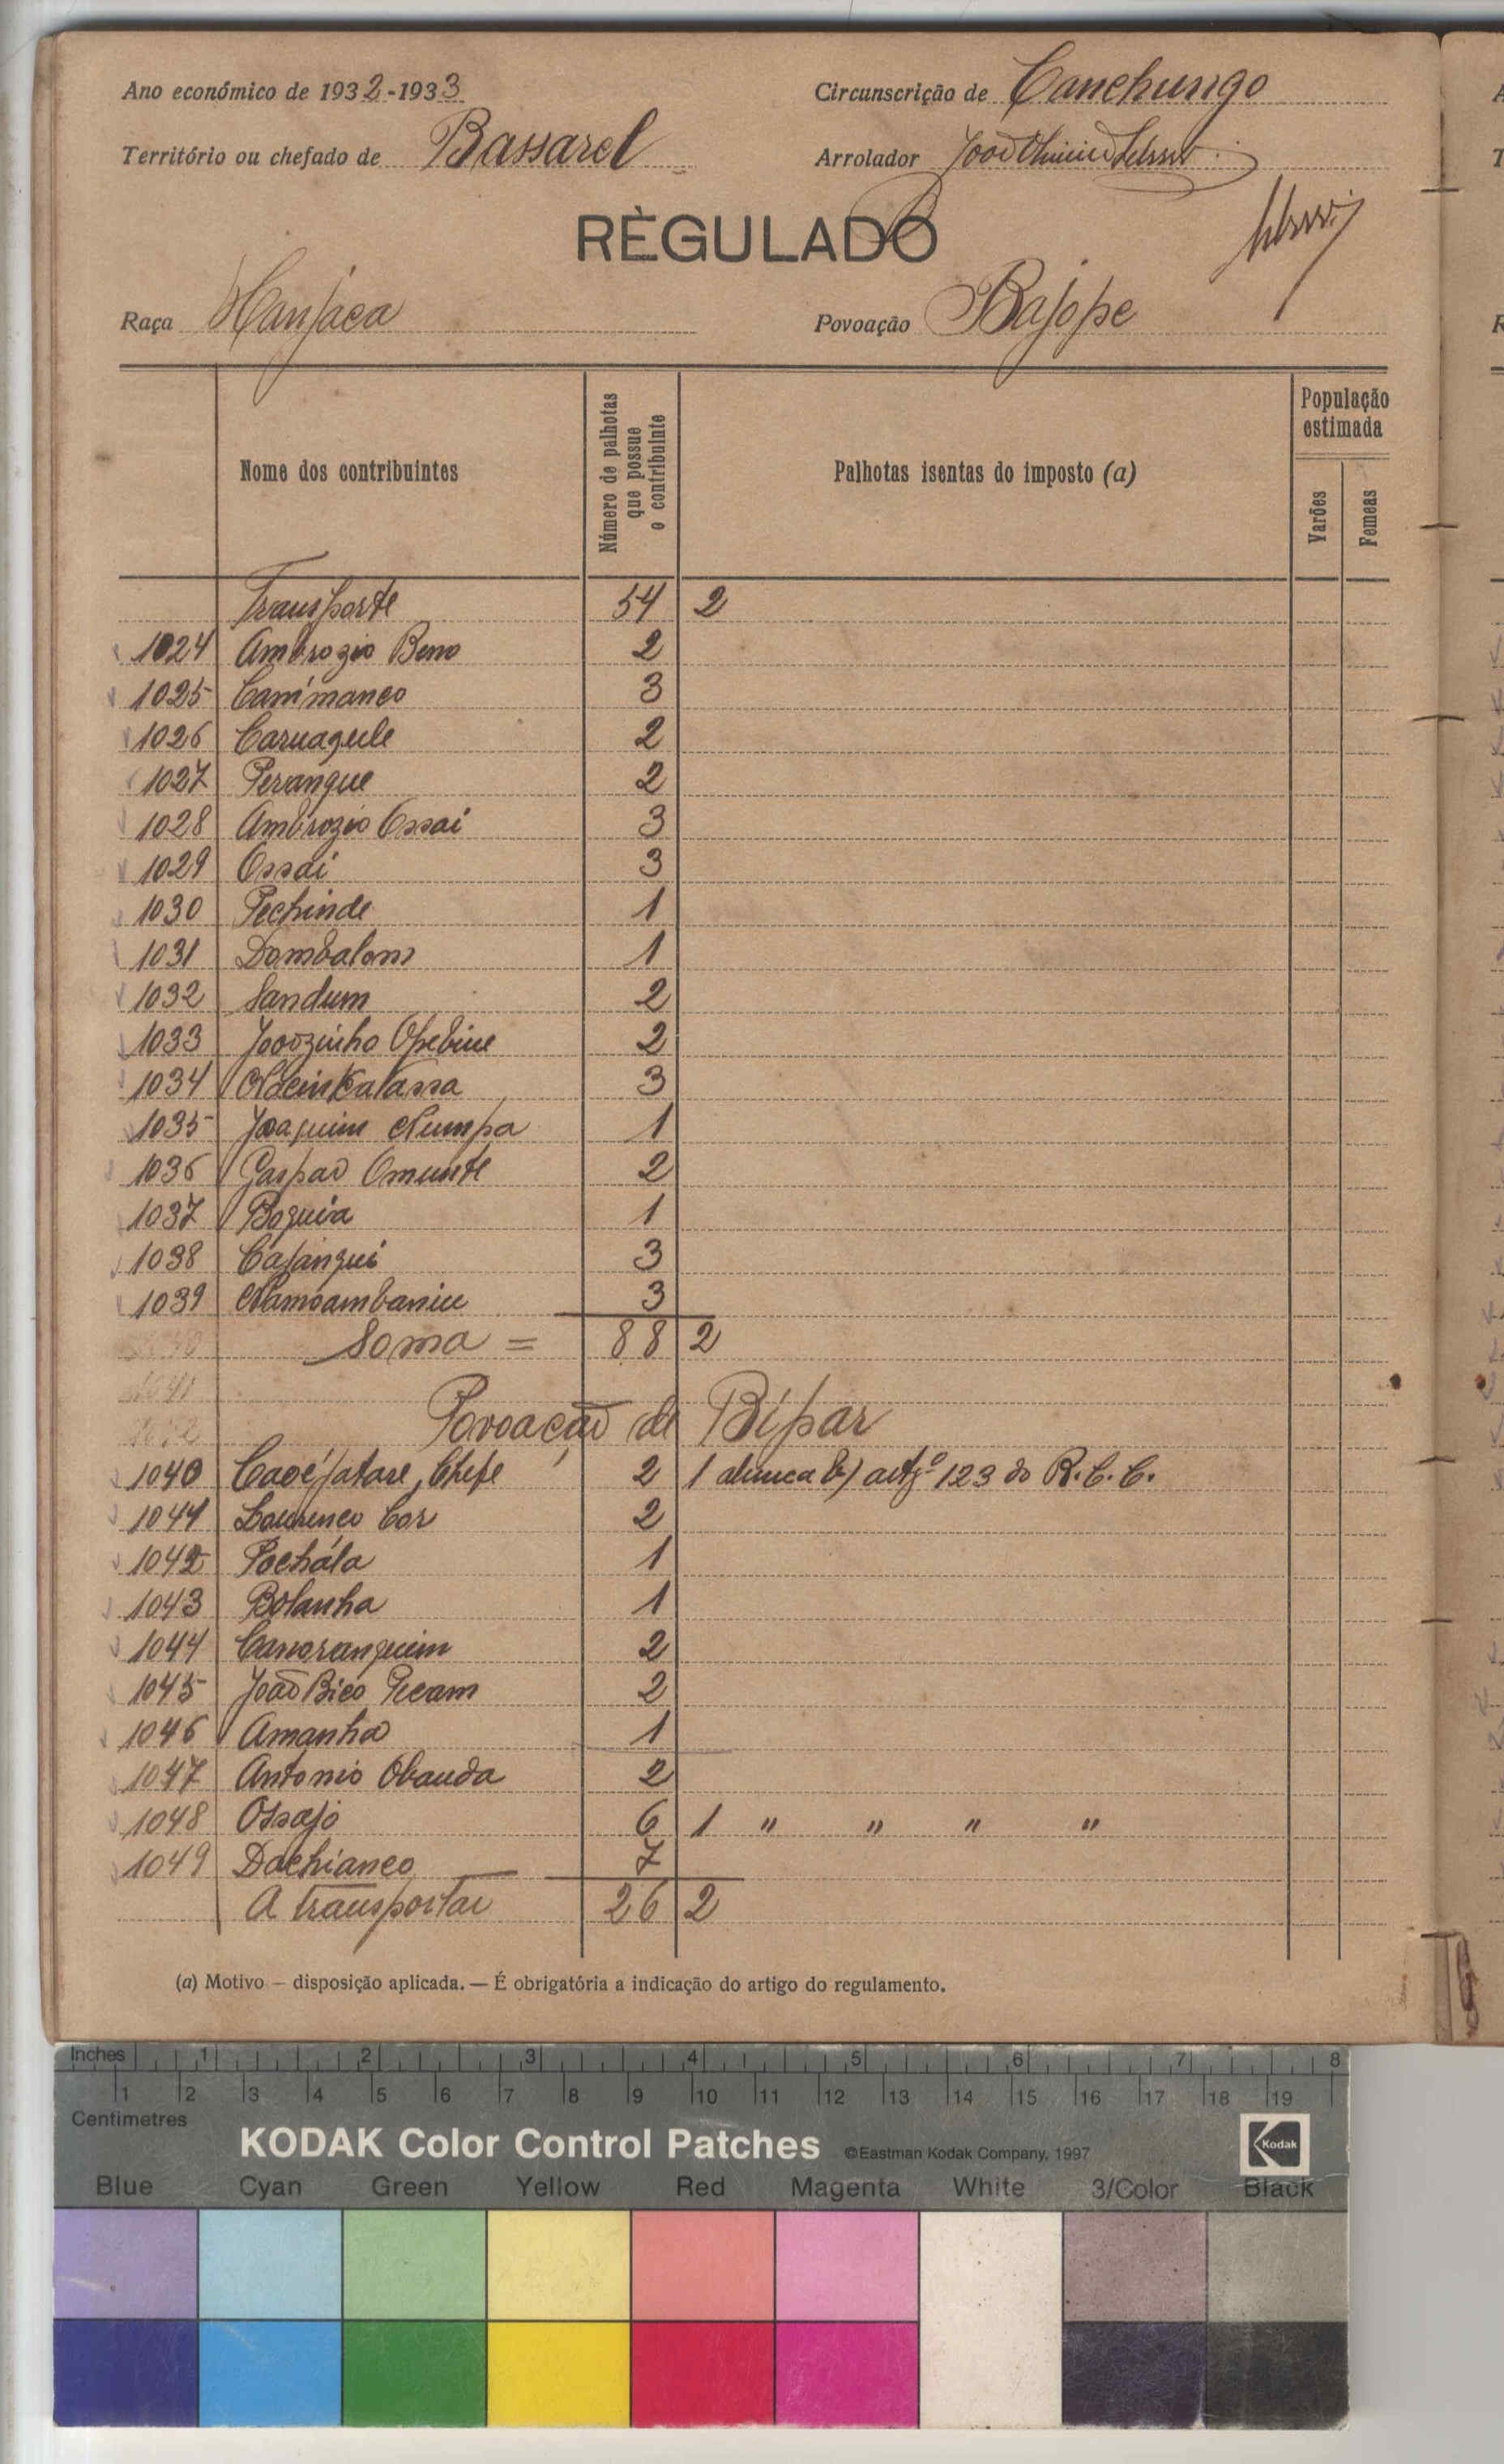 Ano económico de 1932-1933
Circunscrição de Canchungo
Território ou chefado de Bassarel
Arrolador
RÈGULADO
Raça Manjaca
Povoação Bajope
Nome dos contribuintes
Número de palhotas que possue o contribuinte
Palhotas isentas do imposto (a)
População estimada
Varões
Femeas
Transporte 54 2
1024 Ambrozio Beno 2
1025 Canímanco 3
1026 Caruagule 2
1027 Perangue 2
1028 Ambrozio Ossai 3
1029 Ossai 3
1030 Pechinde 1
1031 Dombalom 1
1032 Sandum 2
1033 Joaozinho Opebine 2
1034 3
1035 Joaquim Numpa 1
1036 Gaspar Omunte 2
1037 Boguira 1
1038 Cajangui 3
1039 Namoambanice 3
Soma = 88 2
1041
Povoação de Bipar
1040 Chefe 2 1 alinea b) artgº 123 do R.C.C.
1041 Lourenço Cor 2
1042 Pochála 1
1043 Bolanha 1
1044 Canoranguim 2
1045 João Bico Pecam 2
1046 Amanha 1
1047 Antonio Obanda 2
1048 Ossajo 6 1 " " " "
1049 Dachianco 7
A transportar 26 2
(a) Motivo — disposição aplicada. — É obrigatória a indicação do artigo do regulamento.
Inches 1 2 3 4 5 6 7 8
1 2 3 4 5 6 7 8 9 10 11 12 13 14 15 16 17 18 19
Centimetres
KODAK Color Control Patches ©Eastman Kodak Company, 1997 Kodak
Blue Cyan Green Yellow Red Magenta White 3/Color Black